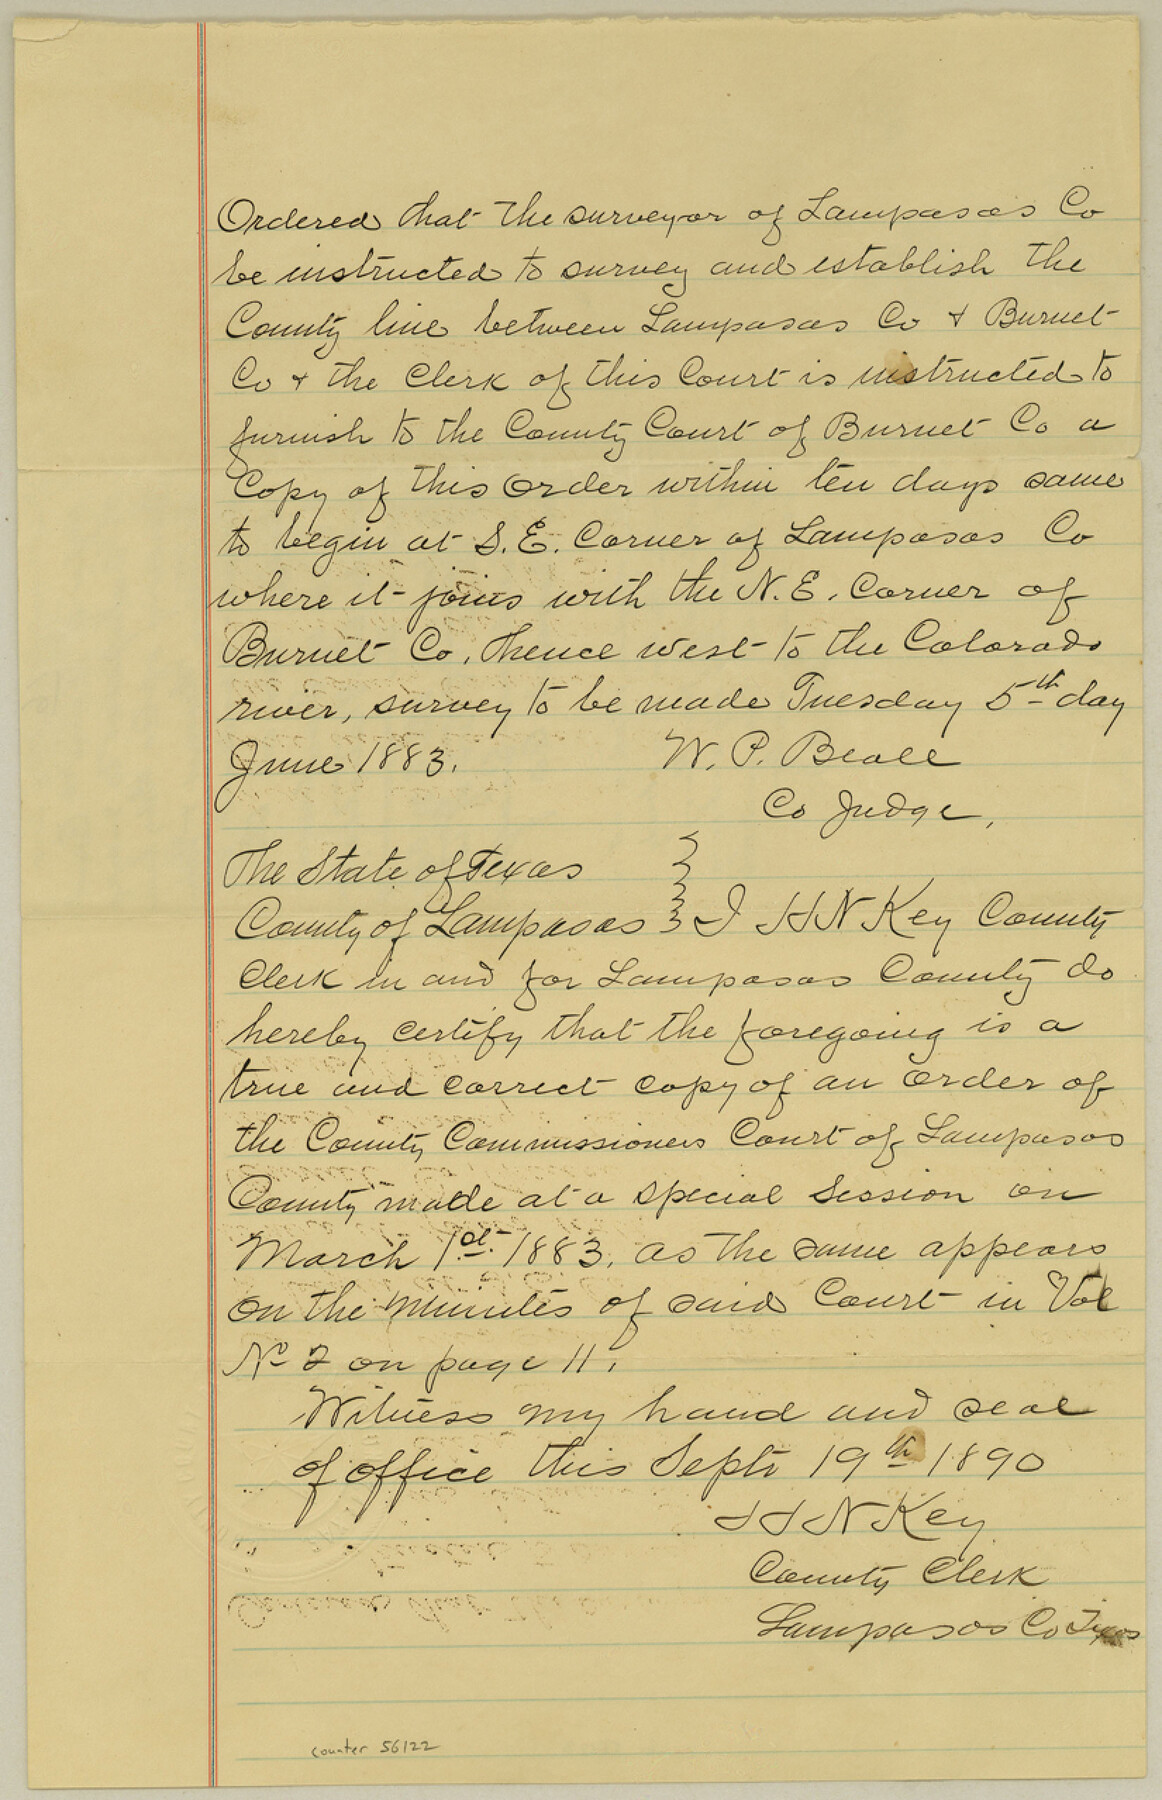 Ordered that the surveyor of Lampasas Co
be instructed to survey and establish the
County line between Lampasas Co & Burnet
Co & the Clerk of this Court is instructed to
furnish to the County Court of Burnet Co a
Copy of this order within ten days same
to begin at S.E. Corner of Lampasas Co
where it joins with the N.E. Corner of
Burnet Co, thence west to the Colorado
river, survey to be made Tuesday 5th day
June 1883.
W. P. Beall
Co Judge,
The State of Texas
County of Lampasas } I H N Key County
Clerk in and for Lampasas County do
hereby certify that the foregoing is a
true and correct copy of an order of
the County Commissioners Court of Lampasas
County made at a special Session on
March 1st. 1883, as the same appears
on the Minutes of said Court in Vol
No 2 on page 11.
Witness my hand and seal
of office this Sept 19th 1890
H N Key
County Clerk
Lampasas Co Texas
counter 56122